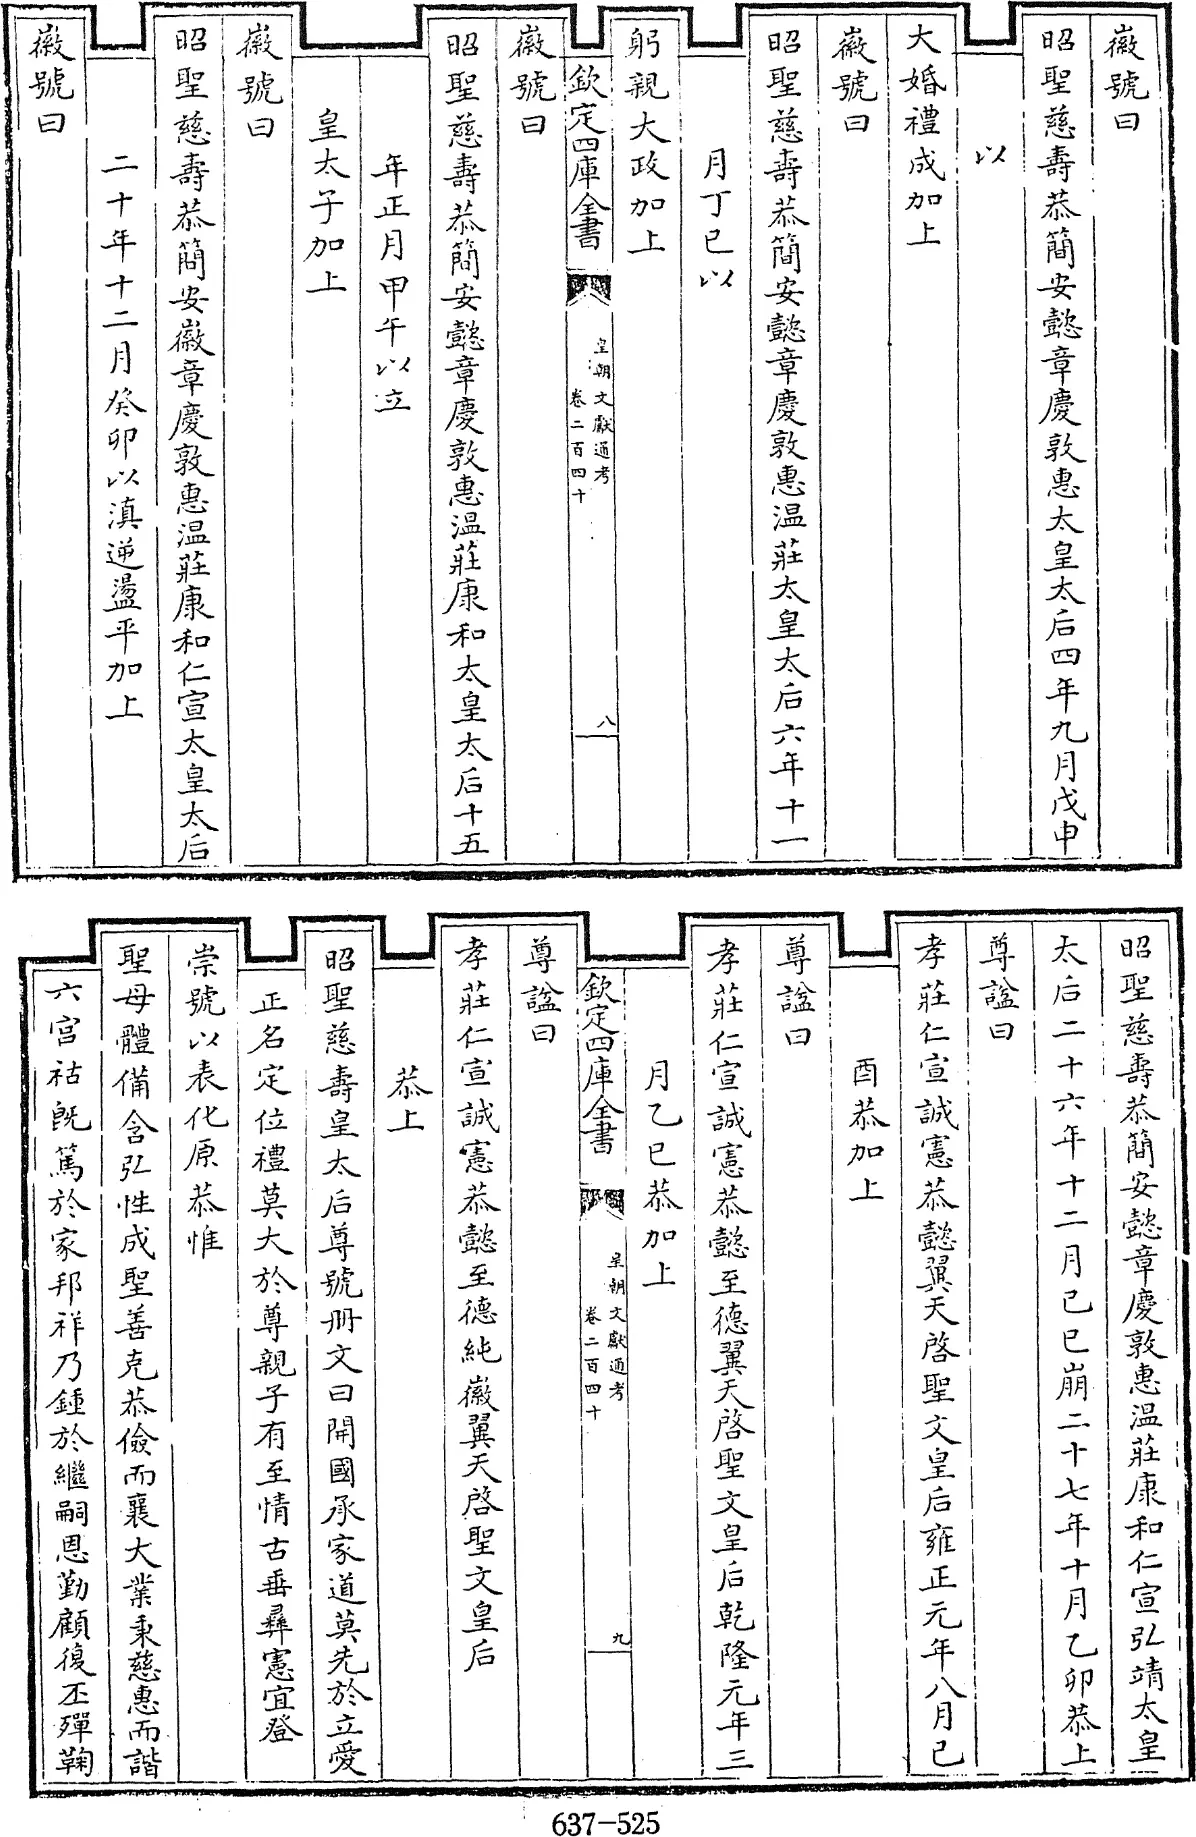 徽號曰
昭聖慈壽恭簡安懿章慶敦惠太皇太后四年九月戊申
以
大婚禮成加上
徽號曰
昭聖慈壽恭簡安懿章慶敦惠溫莊太皇太后六年十一
月丁巳以
躬親大政加上
欽定四庫全書
皇朝文獻通考
卷二百四十
八
徽號曰
昭聖慈壽恭簡安懿章慶敦惠溫莊康和太皇太后十五
年正月甲午以立
皇太子加上
徽號曰
昭聖慈壽恭簡安徽章慶敦惠溫莊康和仁宣太皇太后
二十年十二月癸卯以滇逆盪平加上
徽號曰
昭聖慈壽恭簡安懿章慶敦惠溫莊康和仁宣弘靖太皇
太后二十六年十二月己巳崩二十七年十月乙卯恭上
尊諡曰
孝莊仁宣誠憲恭懿翼天啓聖文皇后雍正元年八月己
酉恭加上
尊諡曰
孝莊仁宣誠憲恭懿至德翼天啓聖文皇后乾隆元年三
月乙巳恭加上
欽定四庫全書
皇朝文獻通考
卷二百四十
九
尊諡曰
孝莊仁宣誠憲恭懿至德純徽翼天啓聖文皇后
恭上
昭聖慈壽皇太后尊號冊文曰開國承家道莫先於立愛
正名定位禮莫大於尊親子有至情古垂彝憲宜登
崇號以表化原恭惟
聖母體備含弘性成聖善克恭儉而襄大業秉慈惠而諧
六宮祜既篤於家邦祥乃鍾於繼嗣恩勤顧復丕殫鞠
637-525